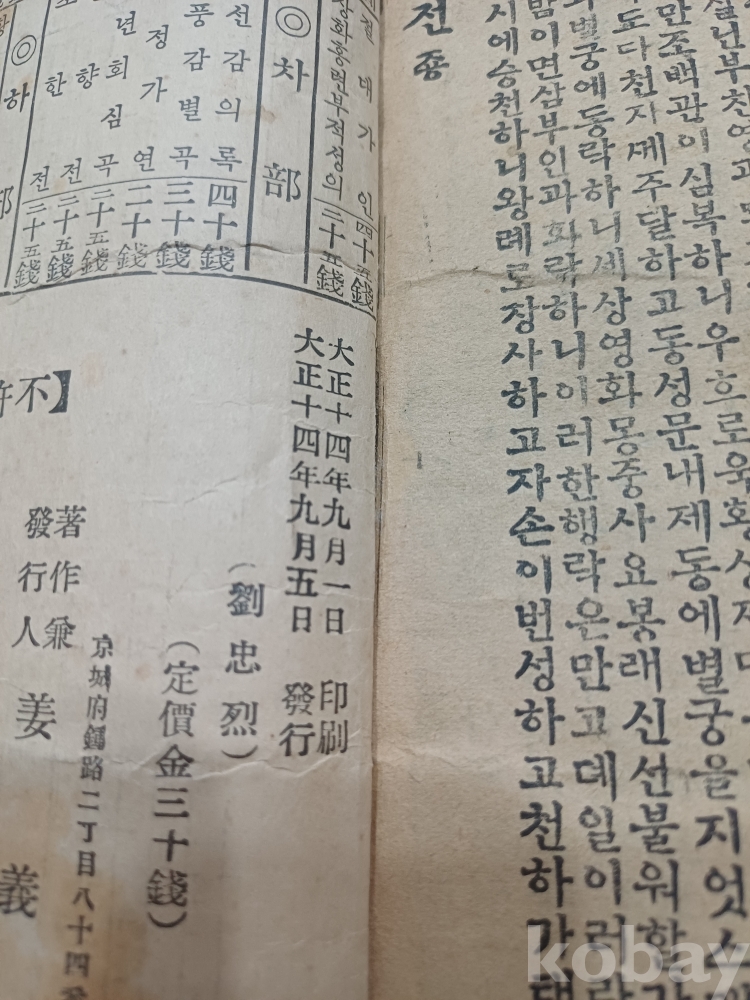 만조백관이심복하니우흐로옥황상
도다천자께주달하고동성문내제동에별궁을지엇스
별궁에동락하니세상영화몽중사요봉래신선불워할
밤이면삼부인과화락하니이러한행락은만고데일이러라
시에승천하니왕례로장사하고자손이번성하고천하가태
전종
절대가인 四十五錢
장화홍련부적성의 二十五錢
◎차部
선감의록 四十錢
풍감별곡 三十錢
정가연 二十錢
년회심곡 二十五錢
향전 二十五錢
한전 二十五錢
◎하部
大正十四年九月一日 印刷
大正十四年九月五日 發行
(劉忠烈)
(定價金三十錢)
京城府鍾路二丁目八十四番
不許
著作兼
發行人 姜義
kobay